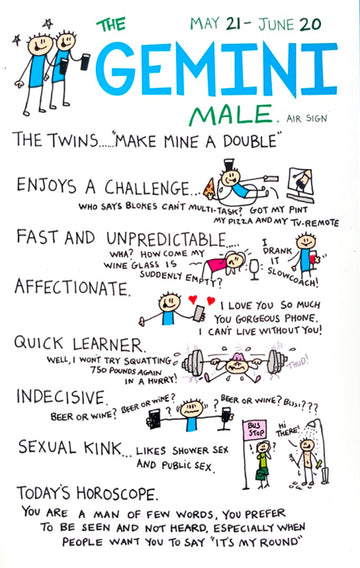 THE
MAY 21 - JUNE 20
GEMINI
MALE. AIR SIGN
THE TWINS....."MAKE MINE A DOUBLE"
ENJOYS A CHALLENGE...
WHO SAYS BLOKES CAN'T MULTI-TASK? GOT MY PINT
MY PIZZA AND MY TV-REMOTE
FAST AND UNPREDICTABLE.....
WHA? HOW COME MY
WINE GLASS IS
SUDDENLY EMPTY?
I
DRANK
IT
SLOWCOACH!
AFFECTIONATE.
I LOVE YOU SO MUCH
YOU GORGEOUS PHONE.
I CAN'T LIVE WITHOUT YOU!
QUICK LEARNER.
WELL, I WONT TRY SQUATTING
750 POUNDS AGAIN
IN A HURRY!
THUD!
INDECISIVE.
BEER OR WINE? BEER OR WINE? ?
? BEER OR WINE? BUS!???
SEXUAL KINK... LIKES SHOWER SEX
AND PUBLIC SEX.
BUS
STOP
HI
THERE!
TODAY'S HOROSCOPE.
YOU ARE A MAN OF FEW WORDS, YOU PREFER
TO BE SEEN AND NOT HEARD, ESPECIALLY WHEN
PEOPLE WANT YOU TO SAY "IT'S MY ROUND"